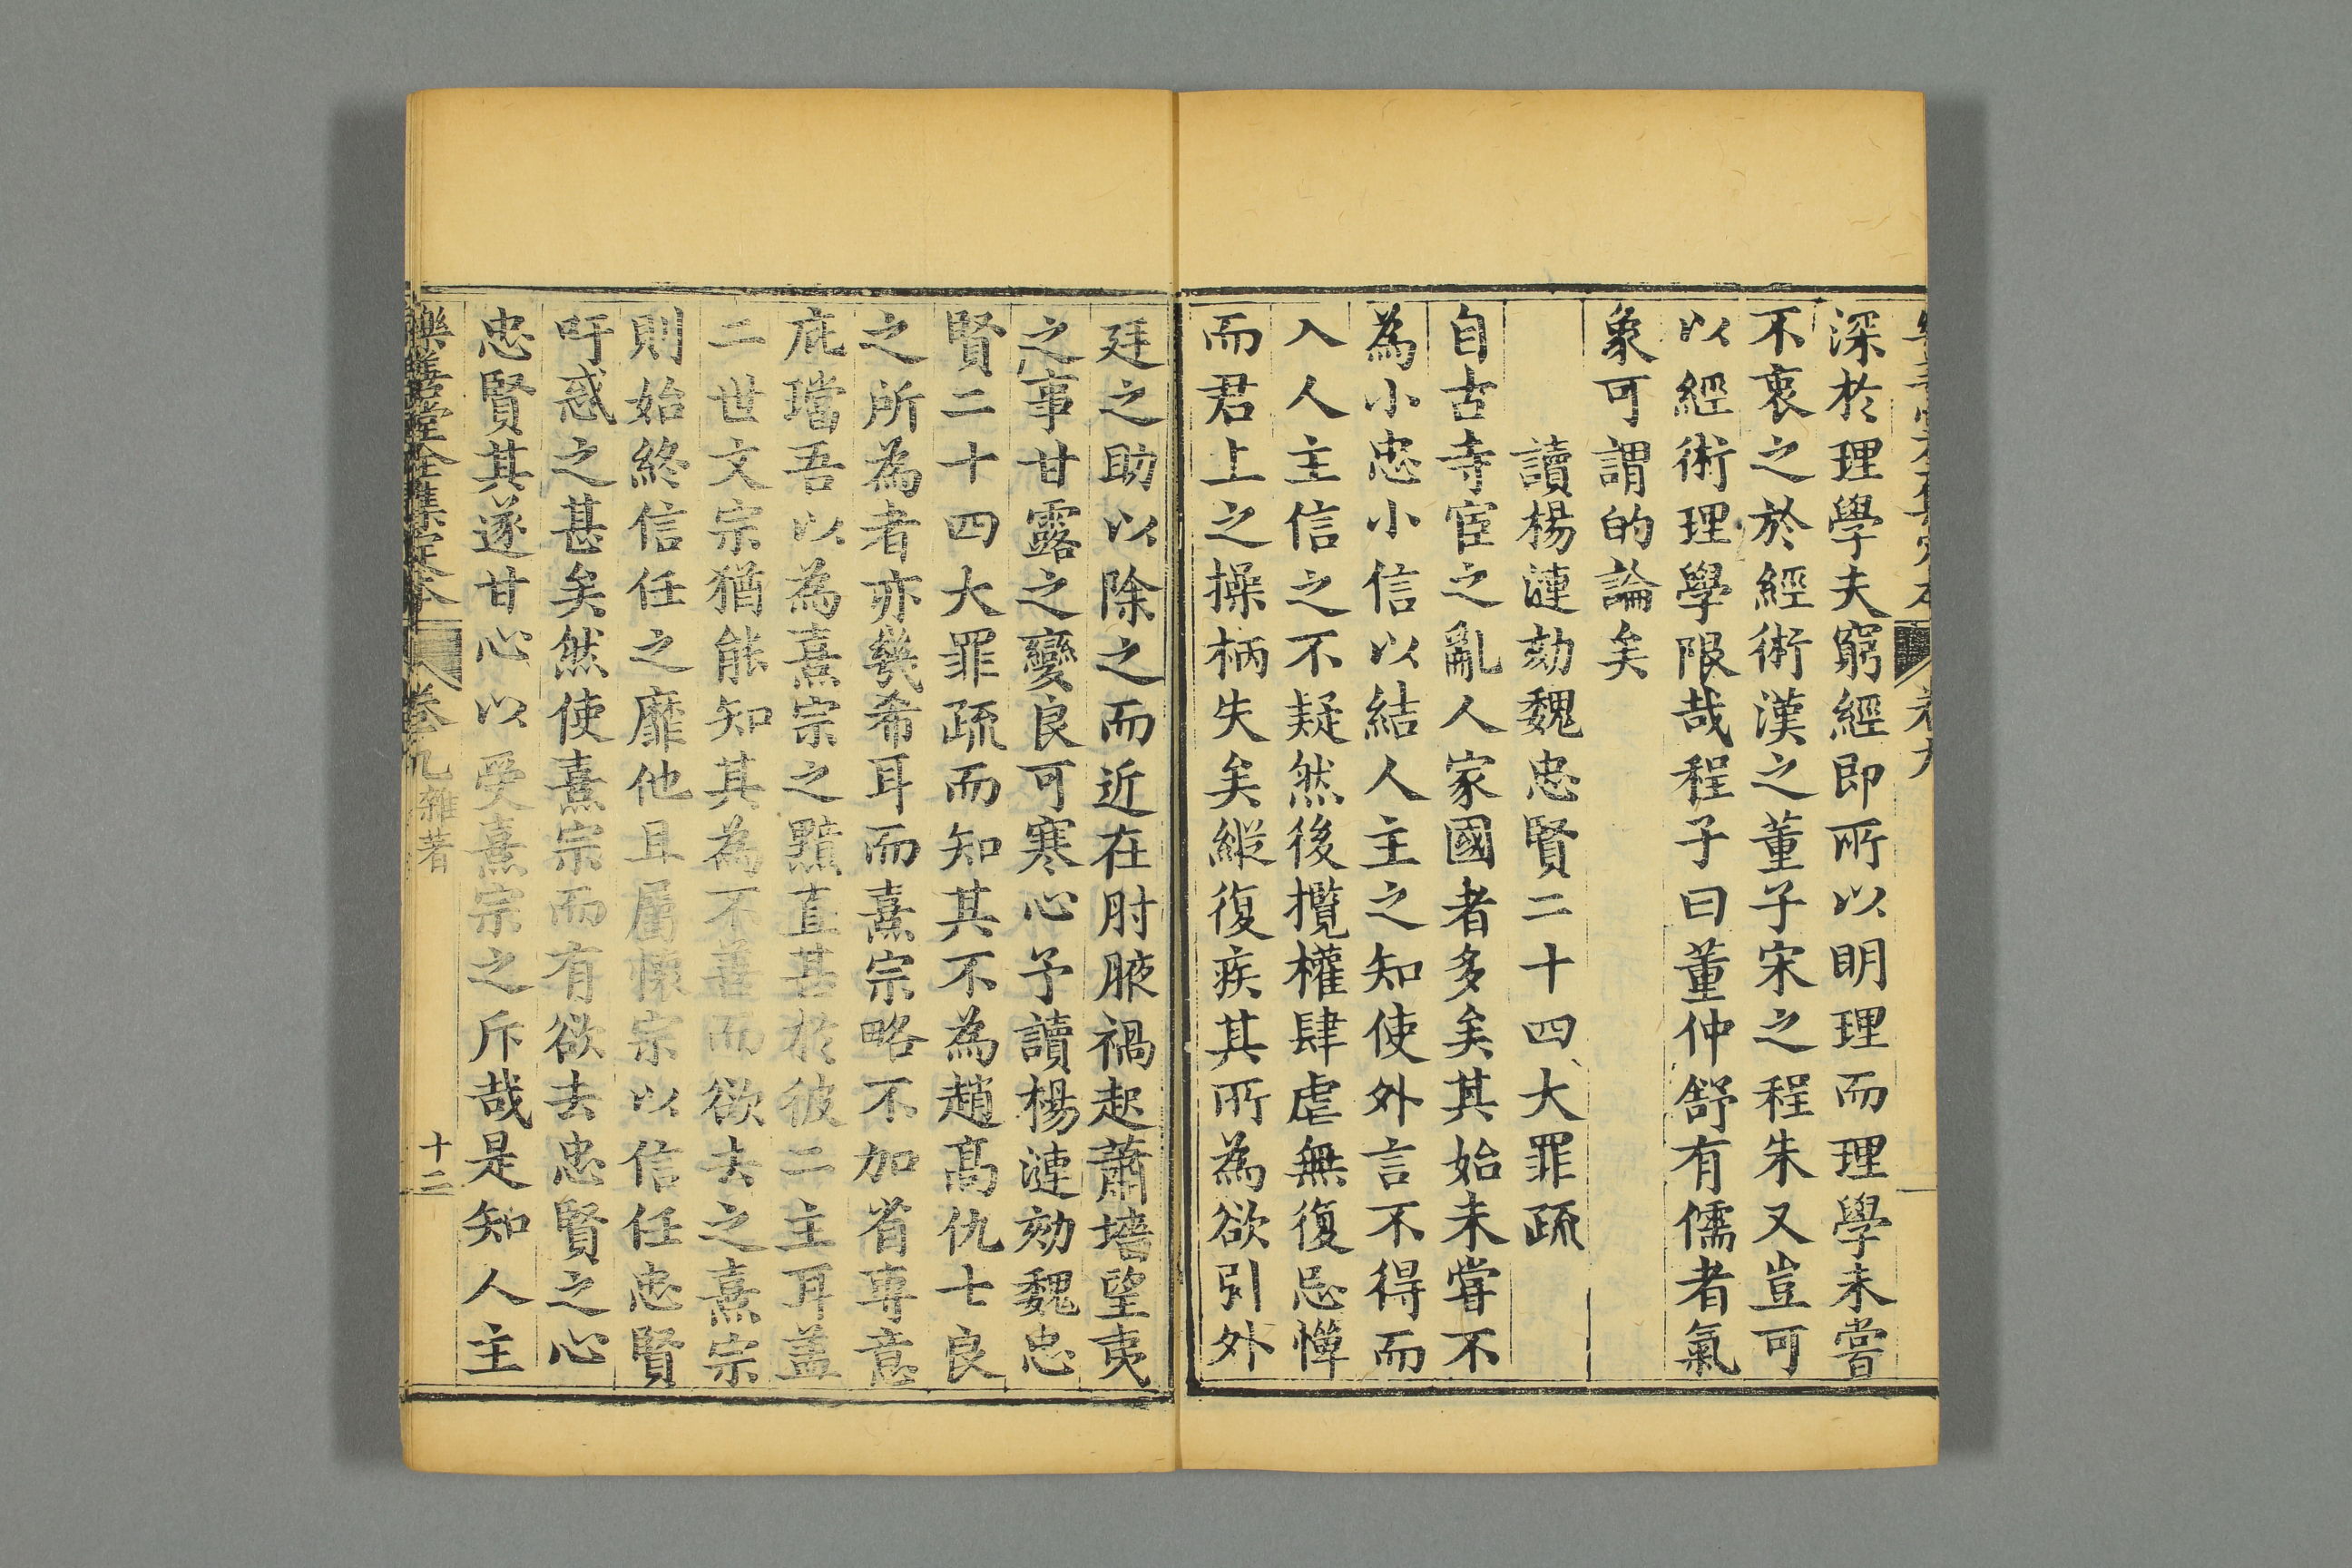 深於理學夫窮經即所以明理而理學未嘗
不衷之於經術漢之董子宋之程朱又豈可
以經術理學限哉程子曰董仲舒有儒者氣
象可謂的論矣
讀楊漣劾魏忠賢二十四大罪疏
自古寺宦之亂人家國者多矣其始未嘗不
為小忠小信以結人主之知使外言不得而
入人主信之不疑然後攬權肆虐無復忌憚
而君上之操柄失矣縱復疾其所為欲引外
廷之助以除之而近在肘腋禍起蕭墻望夷
之事甘露之變良可寒心予讀楊漣劾魏忠
賢二十四大罪疏而知其不為趙高仇士良
之所為者亦幾希耳而熹宗略不加省専意
庇璫吾以為熹宗之黷直甚於彼二主耳葢
二世文宗猶能知其為不善而欲去之熹宗
則始終信任之靡他且屬懷宗以信任忠賢
吁惑之甚矣然使熹宗而有欲去忠賢之心
忠賢其遂甘心以受熹宗之斥哉是知人主
樂善堂全集定本 卷九 雜著 十二